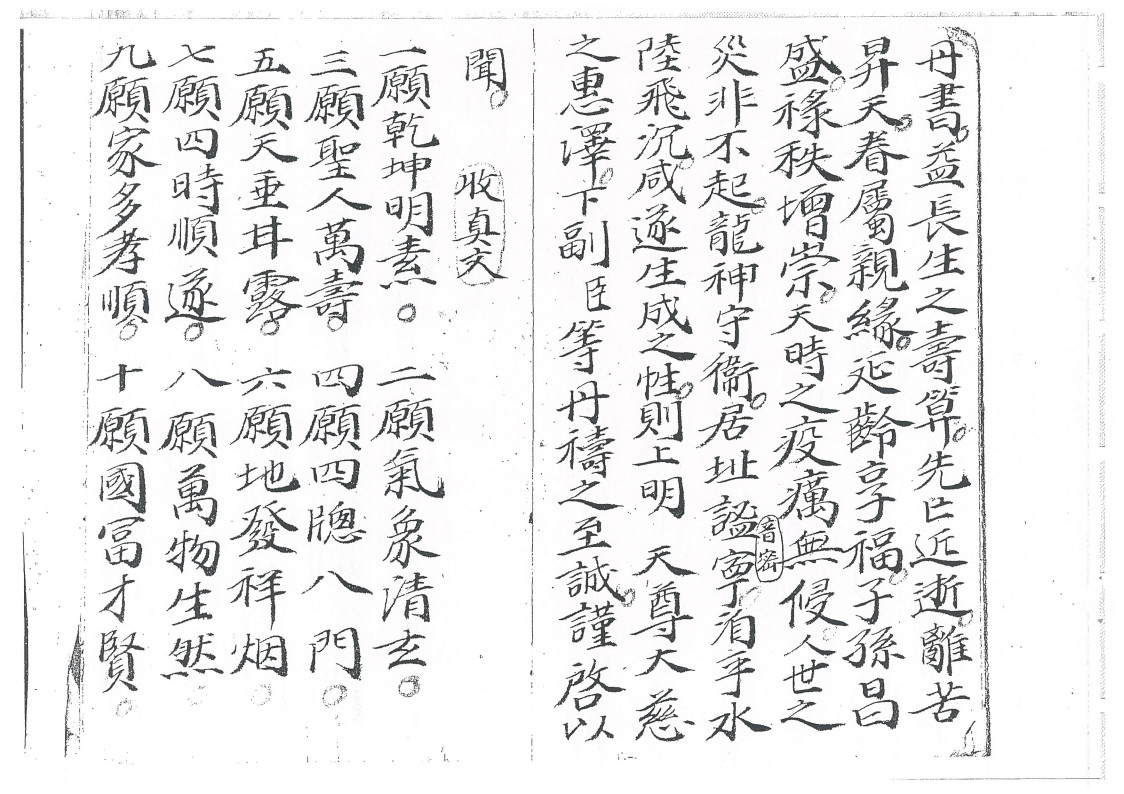 丹書。益長生之壽筭。先亡近逝。離苦
昇天。眷屬親緣。延齡享福。子孫昌
盛。祿秩增崇。天時之疫癘無侵。人世之
災非不起。龍神守衛。居址謐音密寧。乎水
陸飛沉。咸遂生成之性。則上明 天尊大慈
之惠澤。下副臣等丹禱之至誠。謹啓以
聞。 收真文
一願乾坤明素。 二願氣象清玄。
三願聖人萬壽。 四願四牕八門。
五願天垂甘露。 六願地發祥烟。
七願四時順遂。 八願萬物生然。
九願家多孝順。 十願國冨才賢。